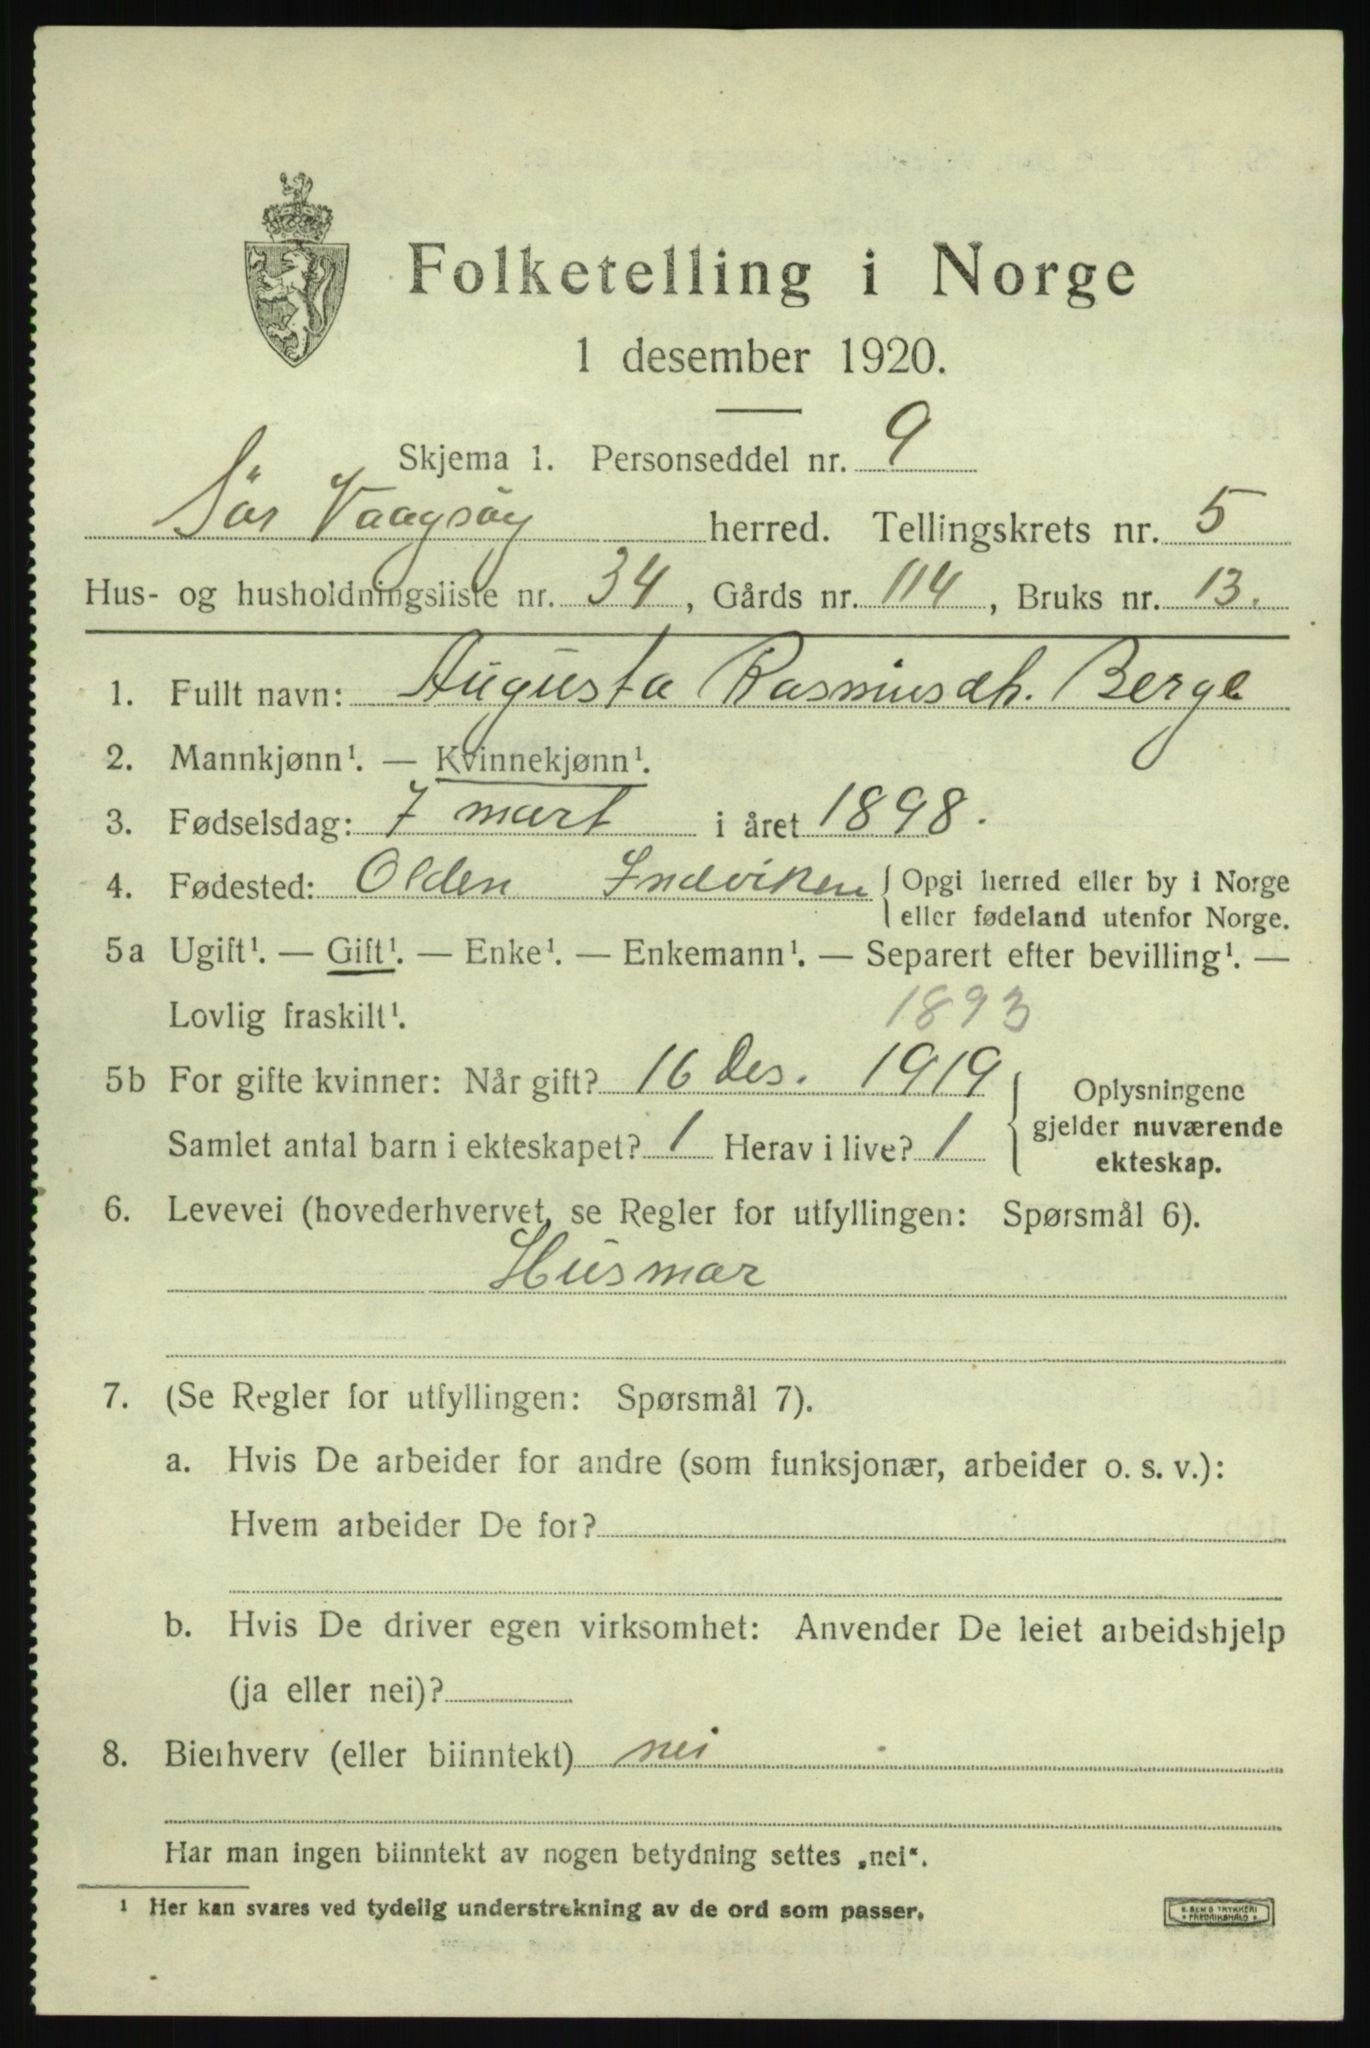 Folketelling i Norge
1 desember 1920.
Skjema 1. Personseddel nr. 9
Sör Vaagsöy herred. Tellingskrets nr. 5
Hus- og husholdningsliste nr. 34, Gårds nr. 114, Bruks nr. 13.
1. Fullt navn: Augusta Rasmusdh. Berge
2. Mannkjønn¹. — Kvinnekjønn¹.
3. Fødselsdag: 7 mart i året 1898.
4. Fødested: Olden Indviken { Opgi herred eller by i Norge
eller fødeland utenfor Norge.
5a Ugift¹. — Gift¹. — Enke¹. — Enkemann¹. — Separert efter bevilling¹. —
Lovlig fraskilt¹. 1893
5b For gifte kvinner: Når gift? 16 Des. 1919
Samlet antal barn i ekteskapet? 1 Herav i live? 1
Oplysningene
gjelder nuværende
ekteskap.
6. Levevei (hovederhvervet, se Regler for utfyllingen: Spørsmål 6).
Husmor
7. (Se Regler for utfyllingen: Spørsmål 7).
a. Hvis De arbeider for andre (som funksjonær, arbeider o. s. v.):
Hvem arbeider De for?
b. Hvis De driver egen virksomhet: Anvender De leiet arbeidshjelp
(ja eller nei)?
8. Bierhverv (eller biinntekt) nei
Har man ingen biinntekt av nogen betydning settes „nei“.
¹ Her kan svares ved tydelig understrekning av de ord som passer.
E. SEMS TRYKKERI
FREDRIKSHALD